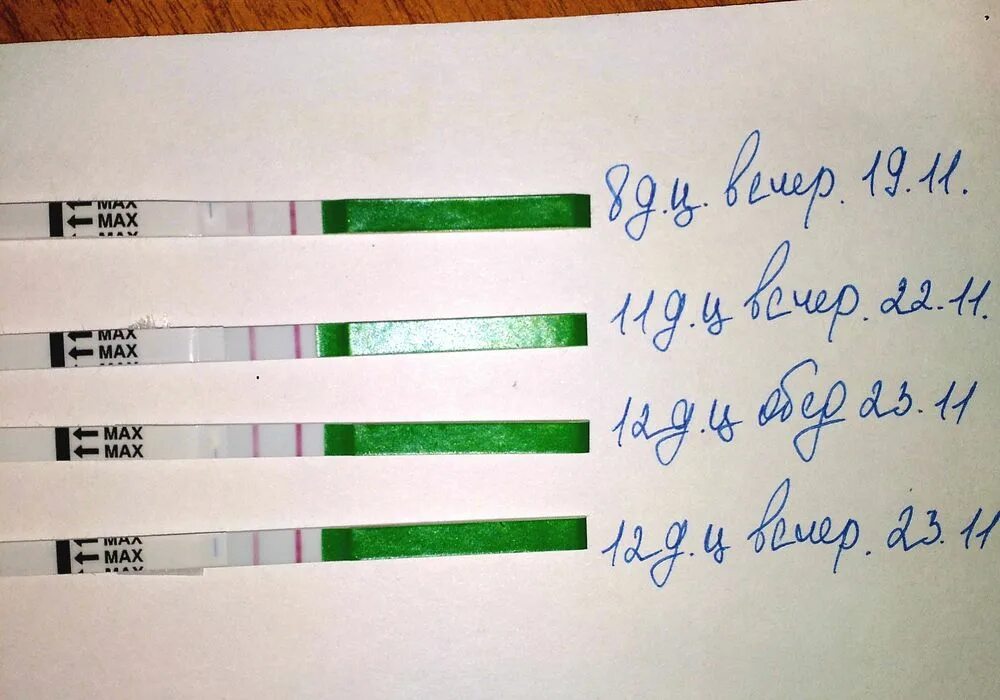 MAX
MAX
MAX
8 д.ц. вечер. 19.11.
MAX
MAX
11 д.ц вечер. 22.11.
MAX
MAX
12 д.ц обед 23.11
MAX
MAX
MAX
12 д.ц вечер. 23.11